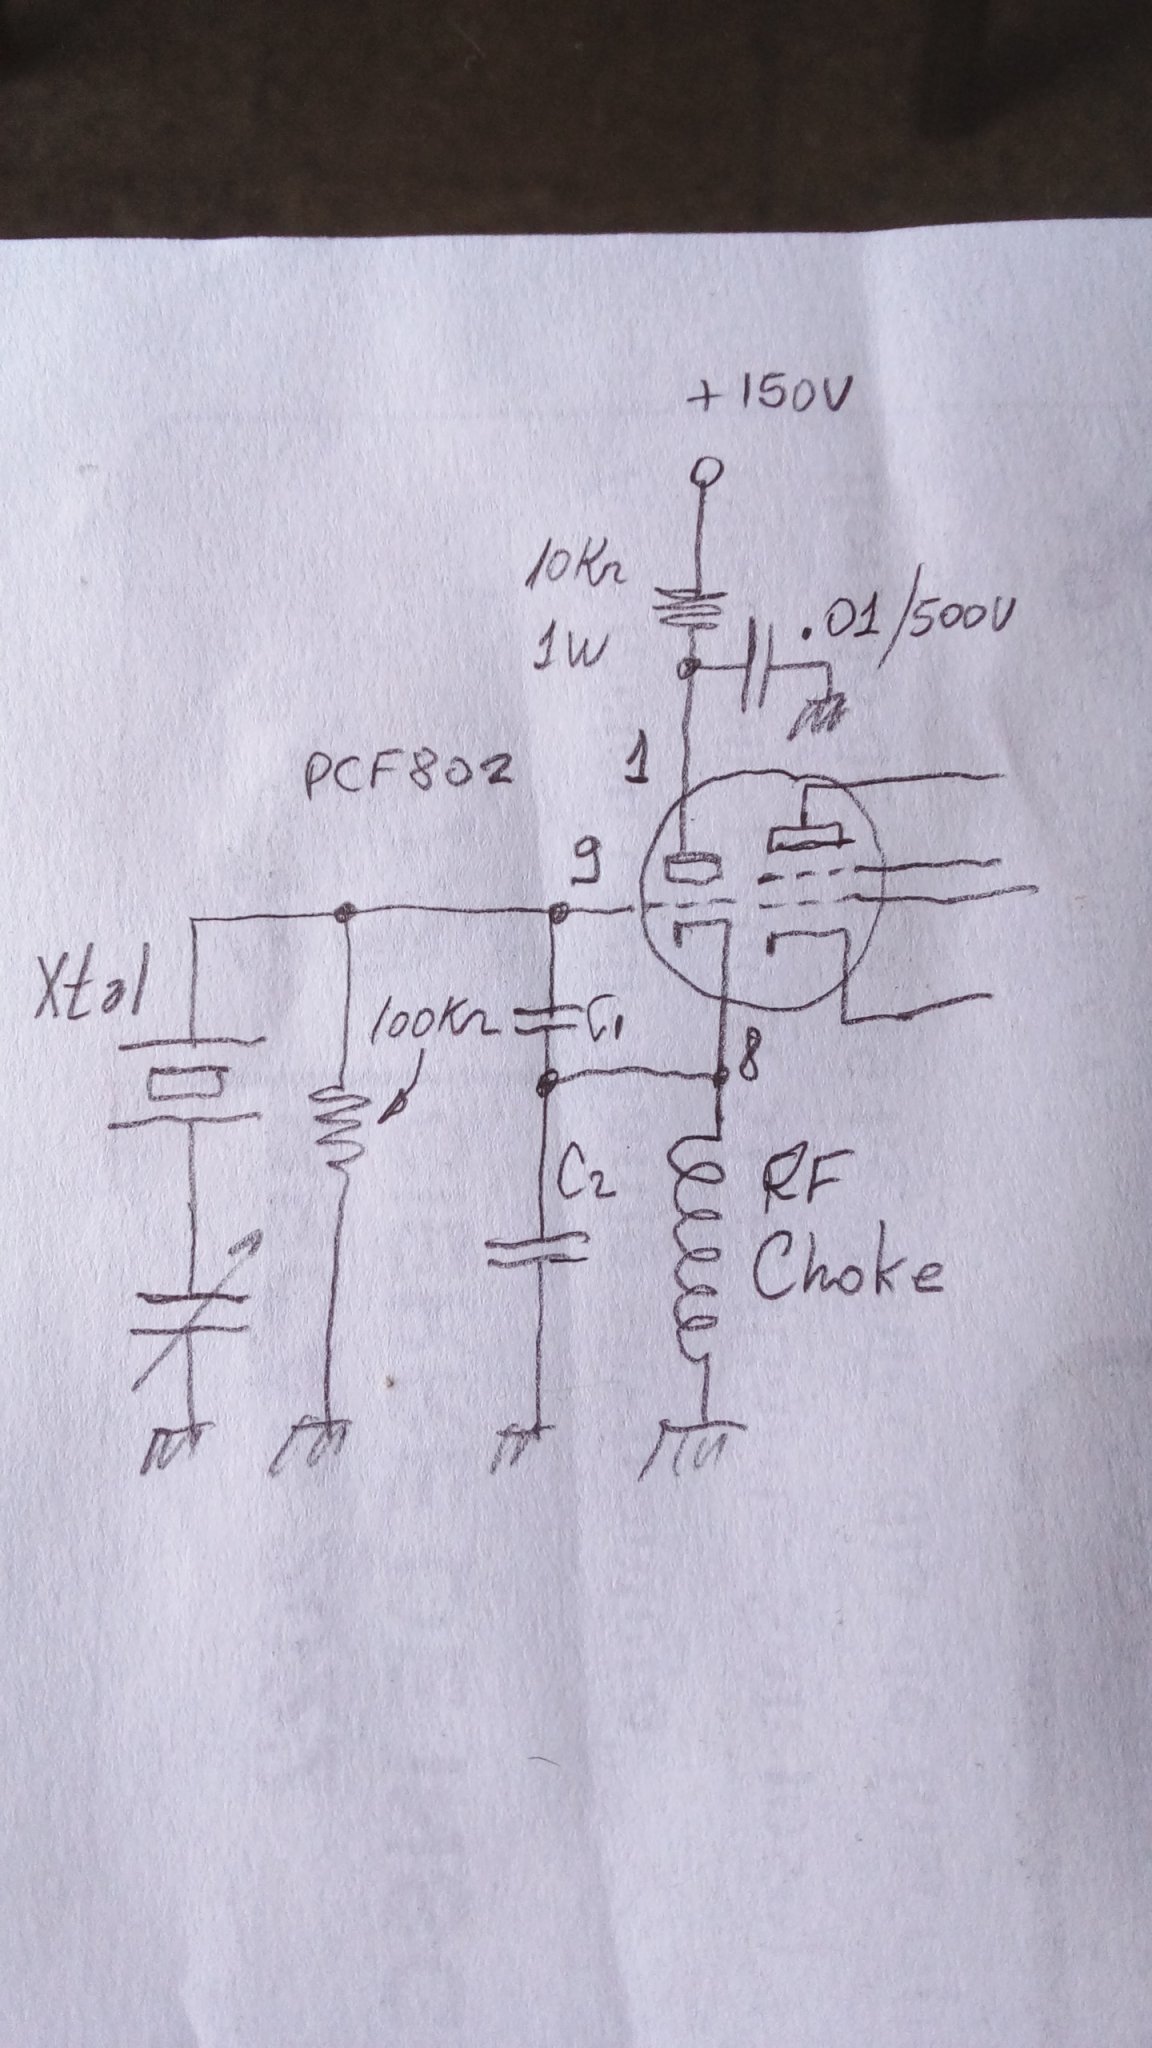 +150V
10KΩ
1W
.01/500V
PCF802
1
9
Xtal
100KΩ
C1
8
C2
RF
Choke